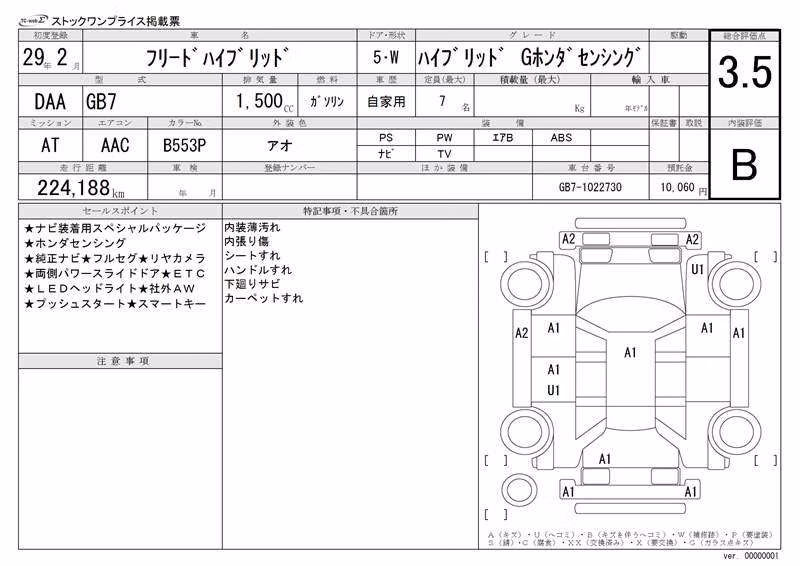 TC-webΣ ストックワンプライス掲載票
初度登録 車名 ドア・形状 グレード 駆動 総合評価点
29年 2月 フリードハイブリッド 5・W ハイブリッド Gホンダセンシング 3.5
型式 排気量 燃料 車歴 定員(最大) 積載量(最大) 輸入車
DAA GB7 1,500CC ガソリン 自家用 7名 Kg 年モデル
ミッション エアコン カラーNo. 外装色 装備 保証書 取説 内装評価
AT AAC B553P アオ PS PW エアB ABS B
ナビ TV
走行距離 車検 登録ナンバー ほか装備 車台番号 預託金
224,188km 年 月 GB7-1022730 10,060円
セールスポイント 特記事項・不具合箇所
★ナビ装着用スペシャルパッケージ
★ホンダセンシング
★純正ナビ★フルセグ★リヤカメラ
★両側パワースライドドア★ETC
★LEDヘッドライト★社外AW
★プッシュスタート★スマートキー
注意事項
内装薄汚れ
内張り傷
シートすれ
ハンドルすれ
下廻りサビ
カーペットすれ
A2 A2
[ ] U1 [ ]
A2 A1 A1 A1
A1
A1
U1
[ ] A1 [ ]
A1 A1
[ ]
A(キズ)・U(ヘコミ)・B(キズを伴うヘコミ)・W(補修跡)・P(要塗装)
S(錆)・C(腐食)・XX(交換済み)・X(要交換)・G(ガラス点キズ)
ver. 00000001